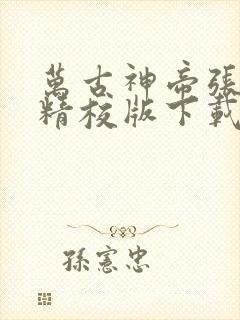 萬古神帝張
精校版下載
孫憲忠